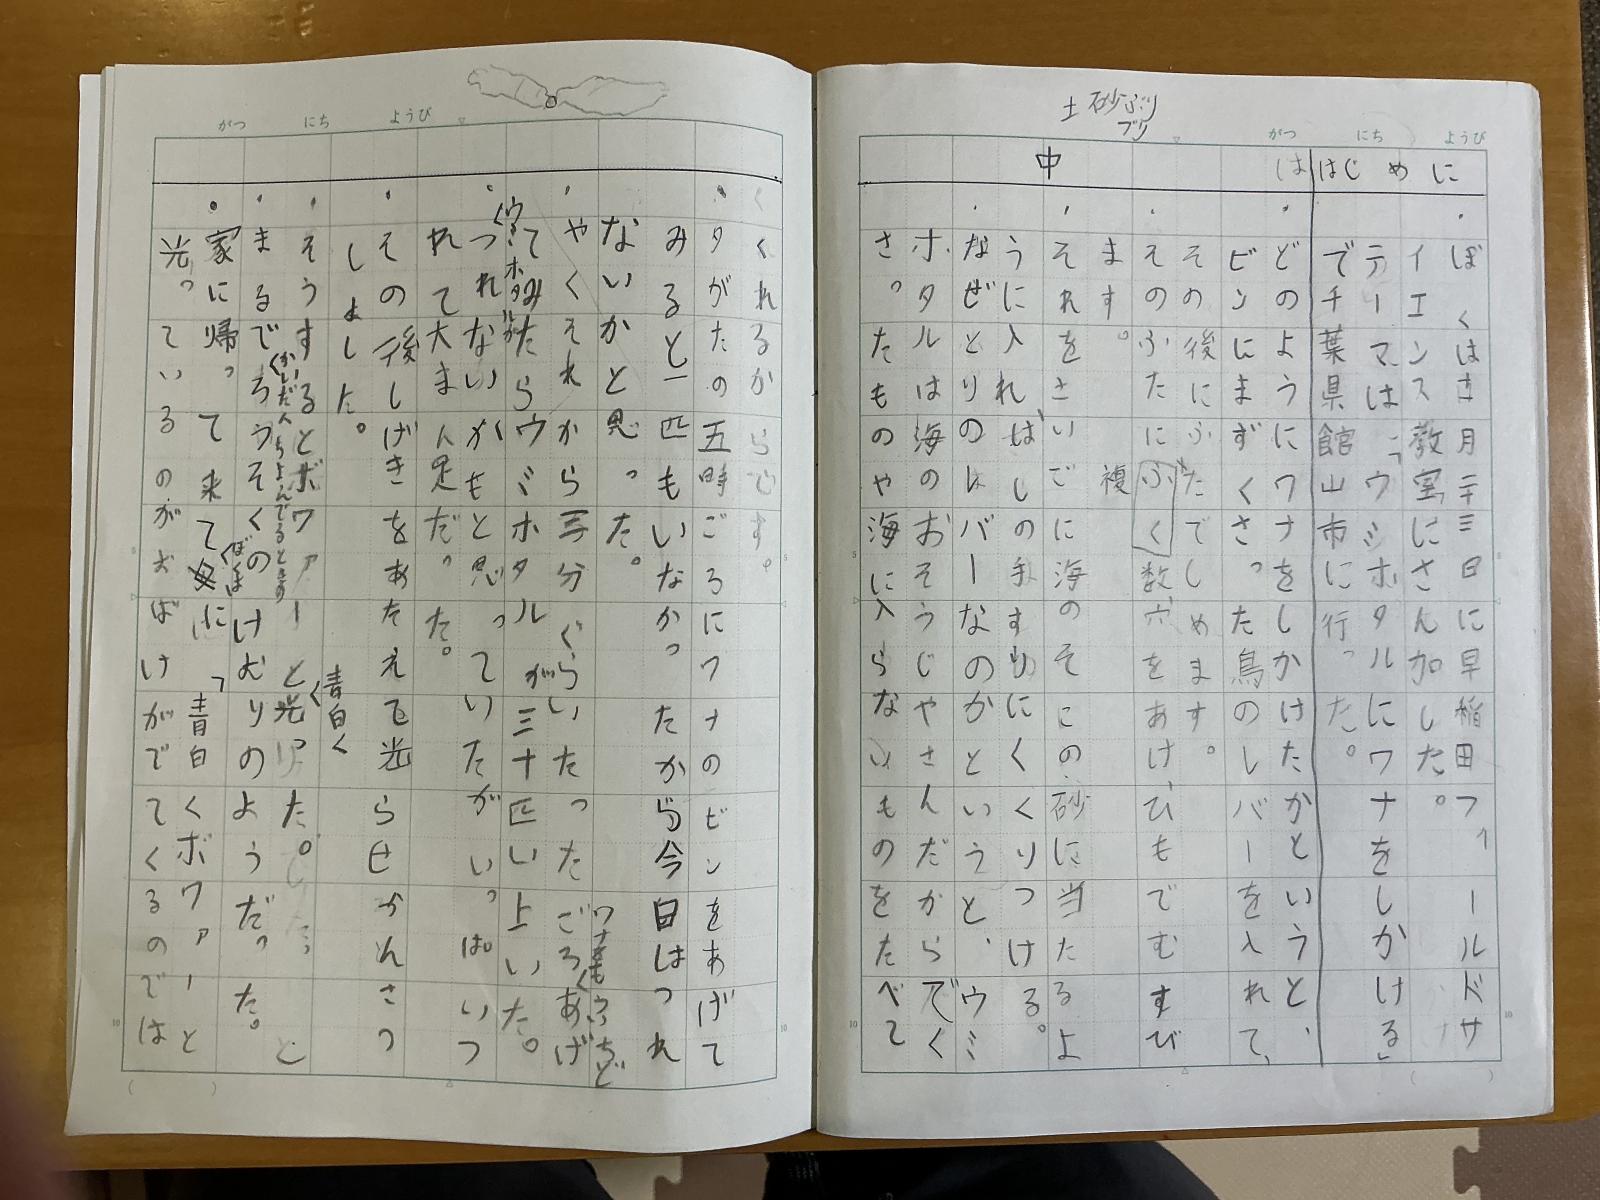 土砂ぶり
ブリ
がつ にち ようび
はじめに
は
中
・ぼくはさ月二十三日に早稲田フィールドサ
イエンス教室にさん加した。
テーマは「ウミホタルにワナをしかける」
で千葉県館山市に行った。
・どのようにワナをしかけたかというと、
ビンにまずくさった鳥のレバーを入れて、
その後にふたでしめます。
・そのふたにふく数穴をあけ、ひもでむすび
複
ます。
・それをさいごに海のそこの砂に当たるよ
うに入れ、はしの手すりにくくりつける。
・なぜとりのレバーなのかというと、ウミ
ホタルは海のおそうじやさんだからでく
さったものや海に入らないものをたべて
がつ にち ようび
くくれるからです。
・夕がたの五時ごろにワナのビンをあげて
みると一匹もいなかったから今日はつれ
ないかと思った。
・やくそれから三十分ぐらいたったごろあげ
ワナを
てみたらウミホタルが三十匹い上いた。
ウミホタルが
・つれないかもと思っていたがいっぱいつ
れて大まん足だった。
・その後しげきをあたえて光らせかんさつ
しました。
青白く
・そうするとボワァーと光った。
・まるでろうそくのけむりのようだった。
ぼくは
・家に帰って来てに「青白くボワァーと
光っているのがおばけがでてくるのでは